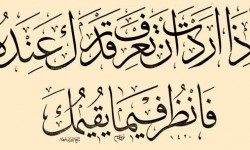 ذا اردت ان تعرف قدرك عنده
فانظر فيما يقيمك
١٤٢٠